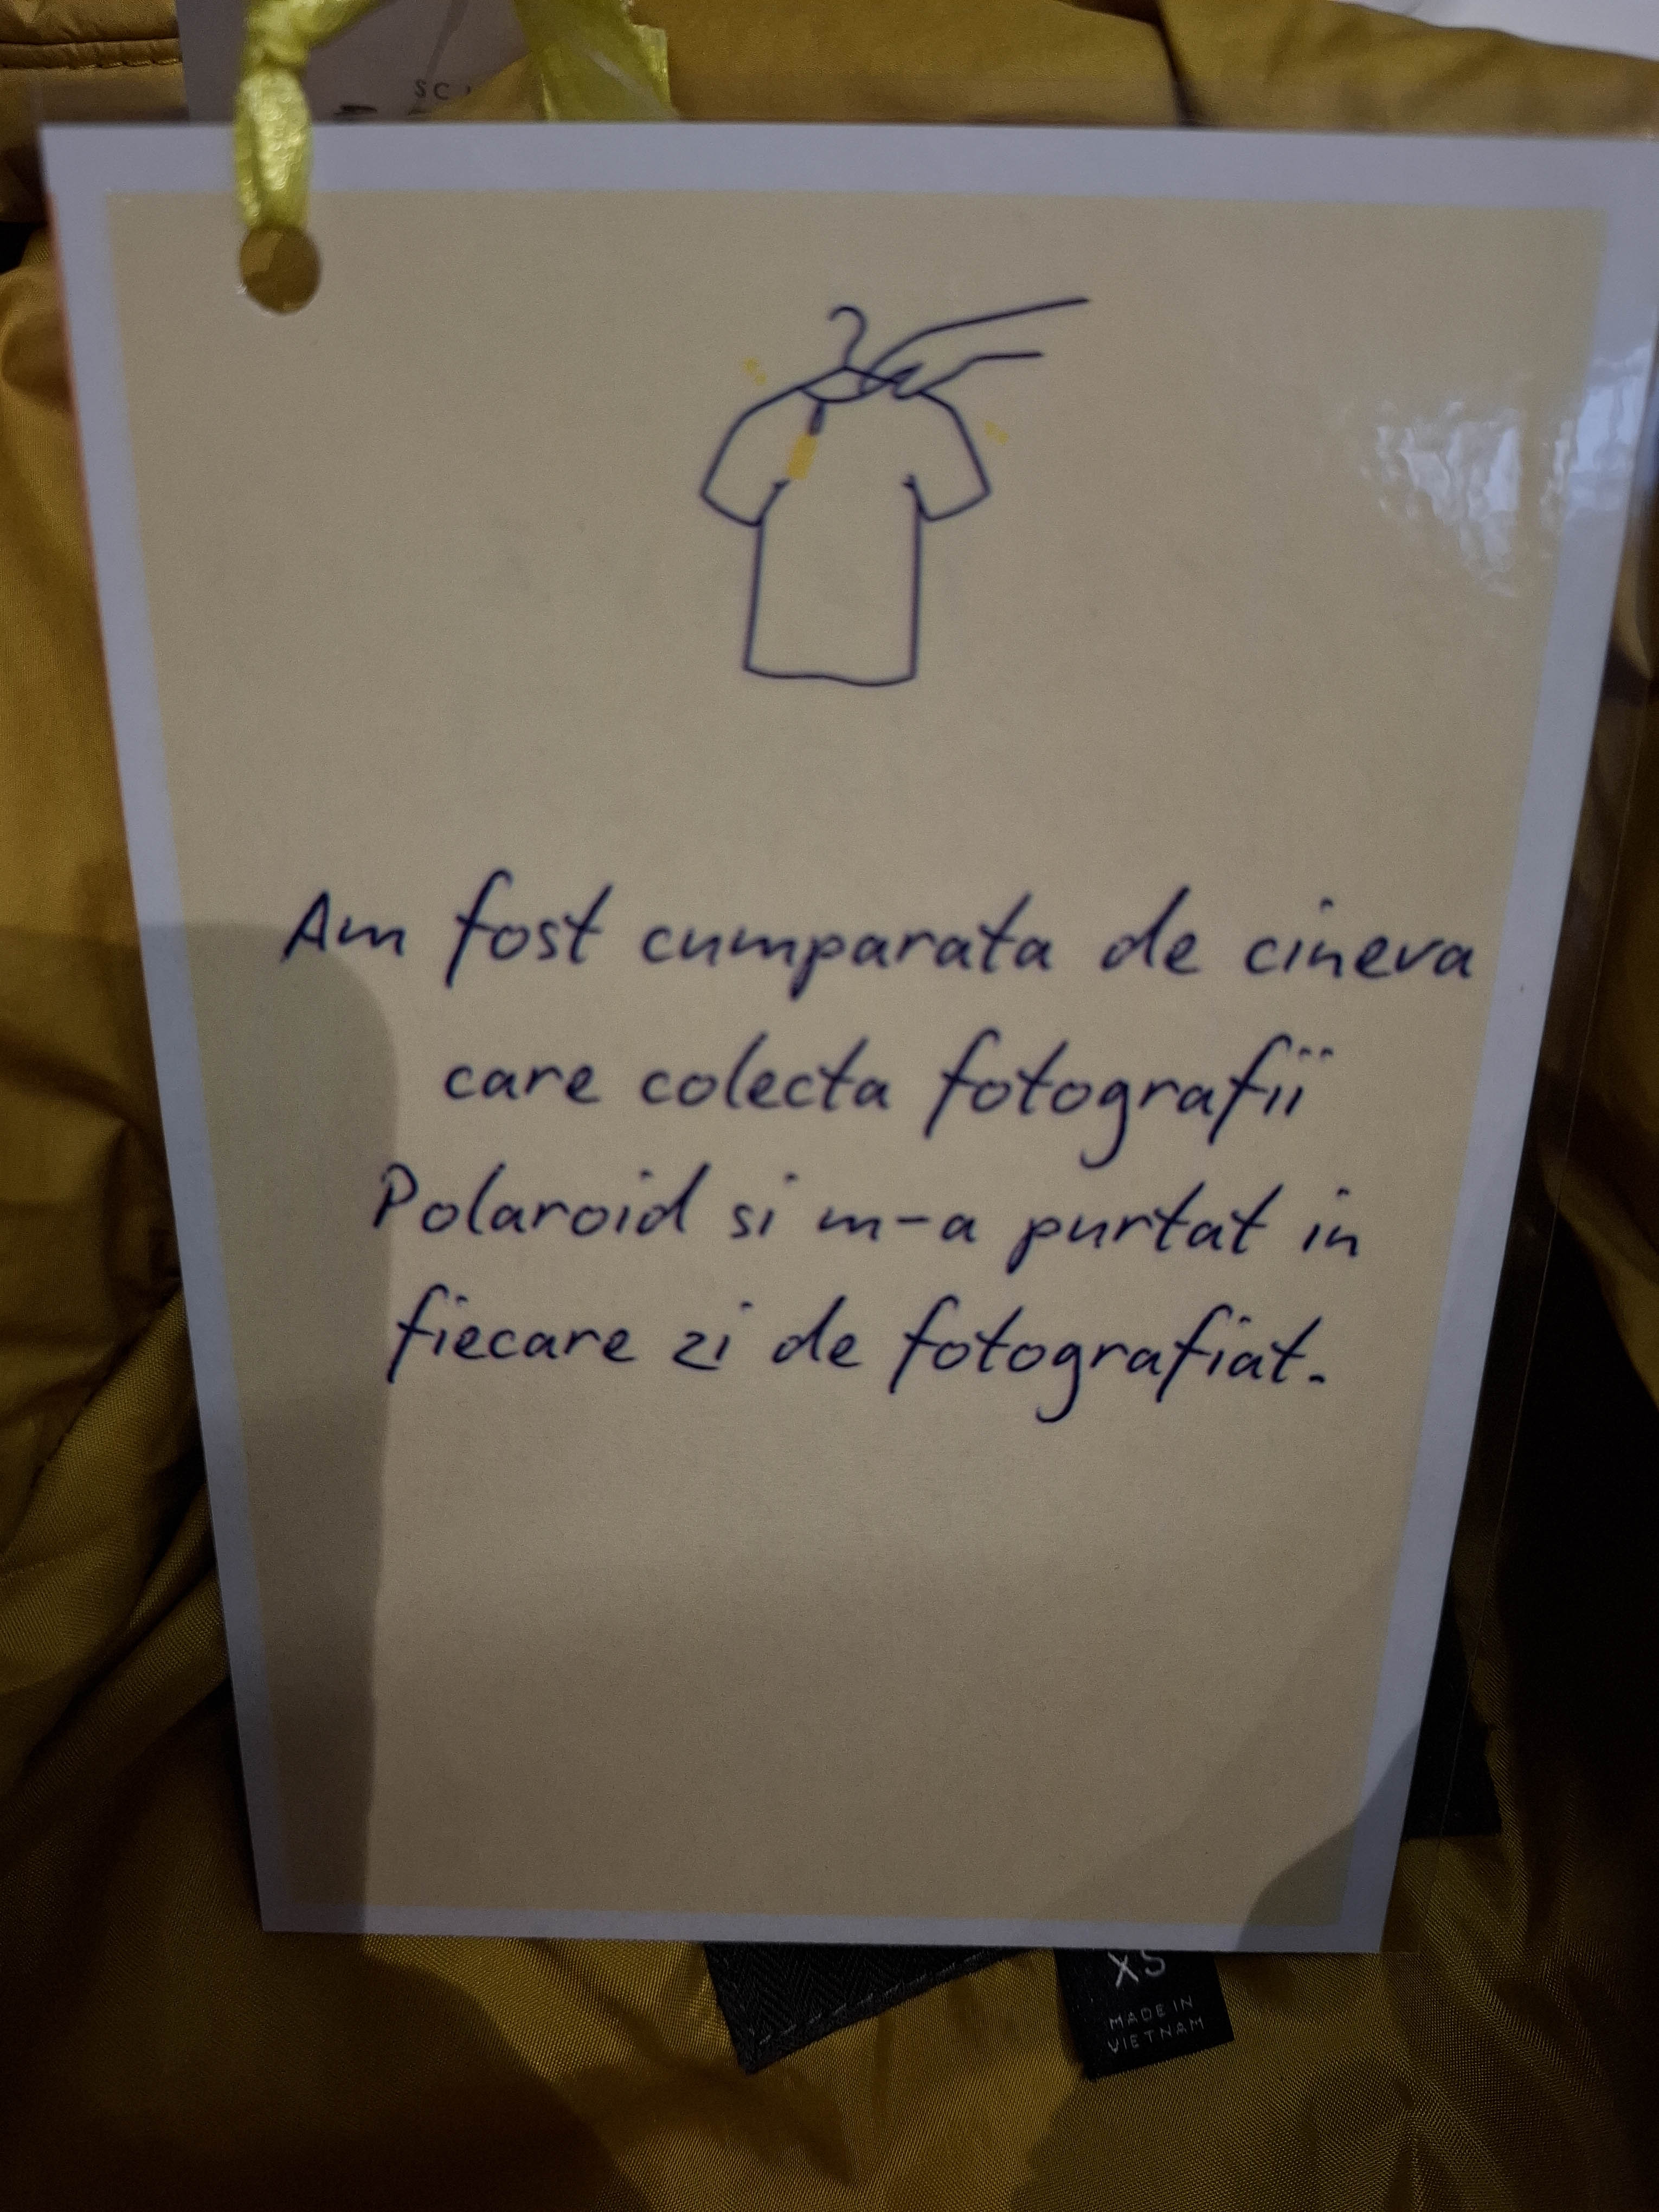 SC
Am fost cumparata de cineva
care colecta fotografii
Polaroid si m-a purtat in
fiecare zi de fotografiat.
XS
MADE IN
VIETNAM